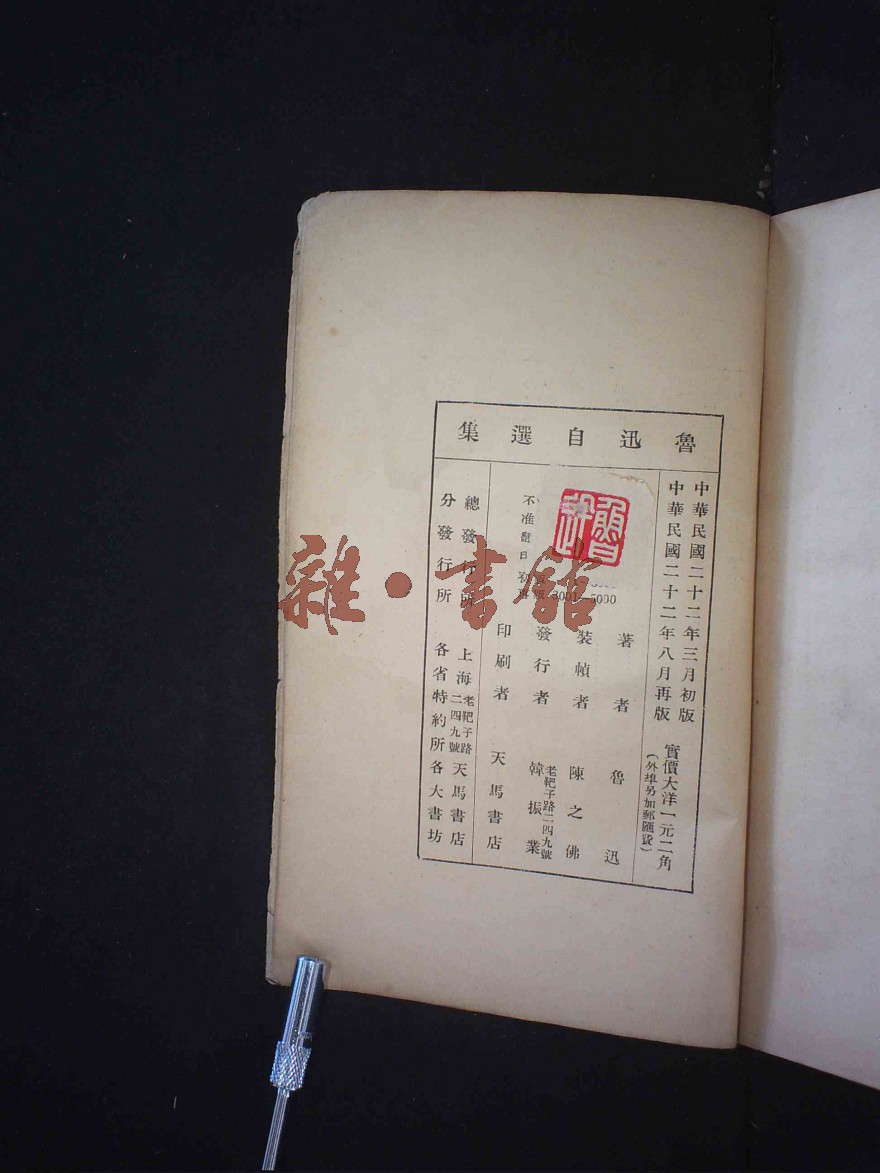 魯迅自選集
中華民國二十二年三月初版
中華民國二十二年八月再版
實價大洋一元二角
(外埠另加郵匯費)
著者 魯迅
裝幀者 陳之佛
發行者 老靶子路二四九號 韓振業
印刷者 天馬書店
不准翻
版 3001—5000
總發行所 上海老靶子路二四九號 天馬書店
分發行所 各省特約所各大書坊
魯迅
雜·書館